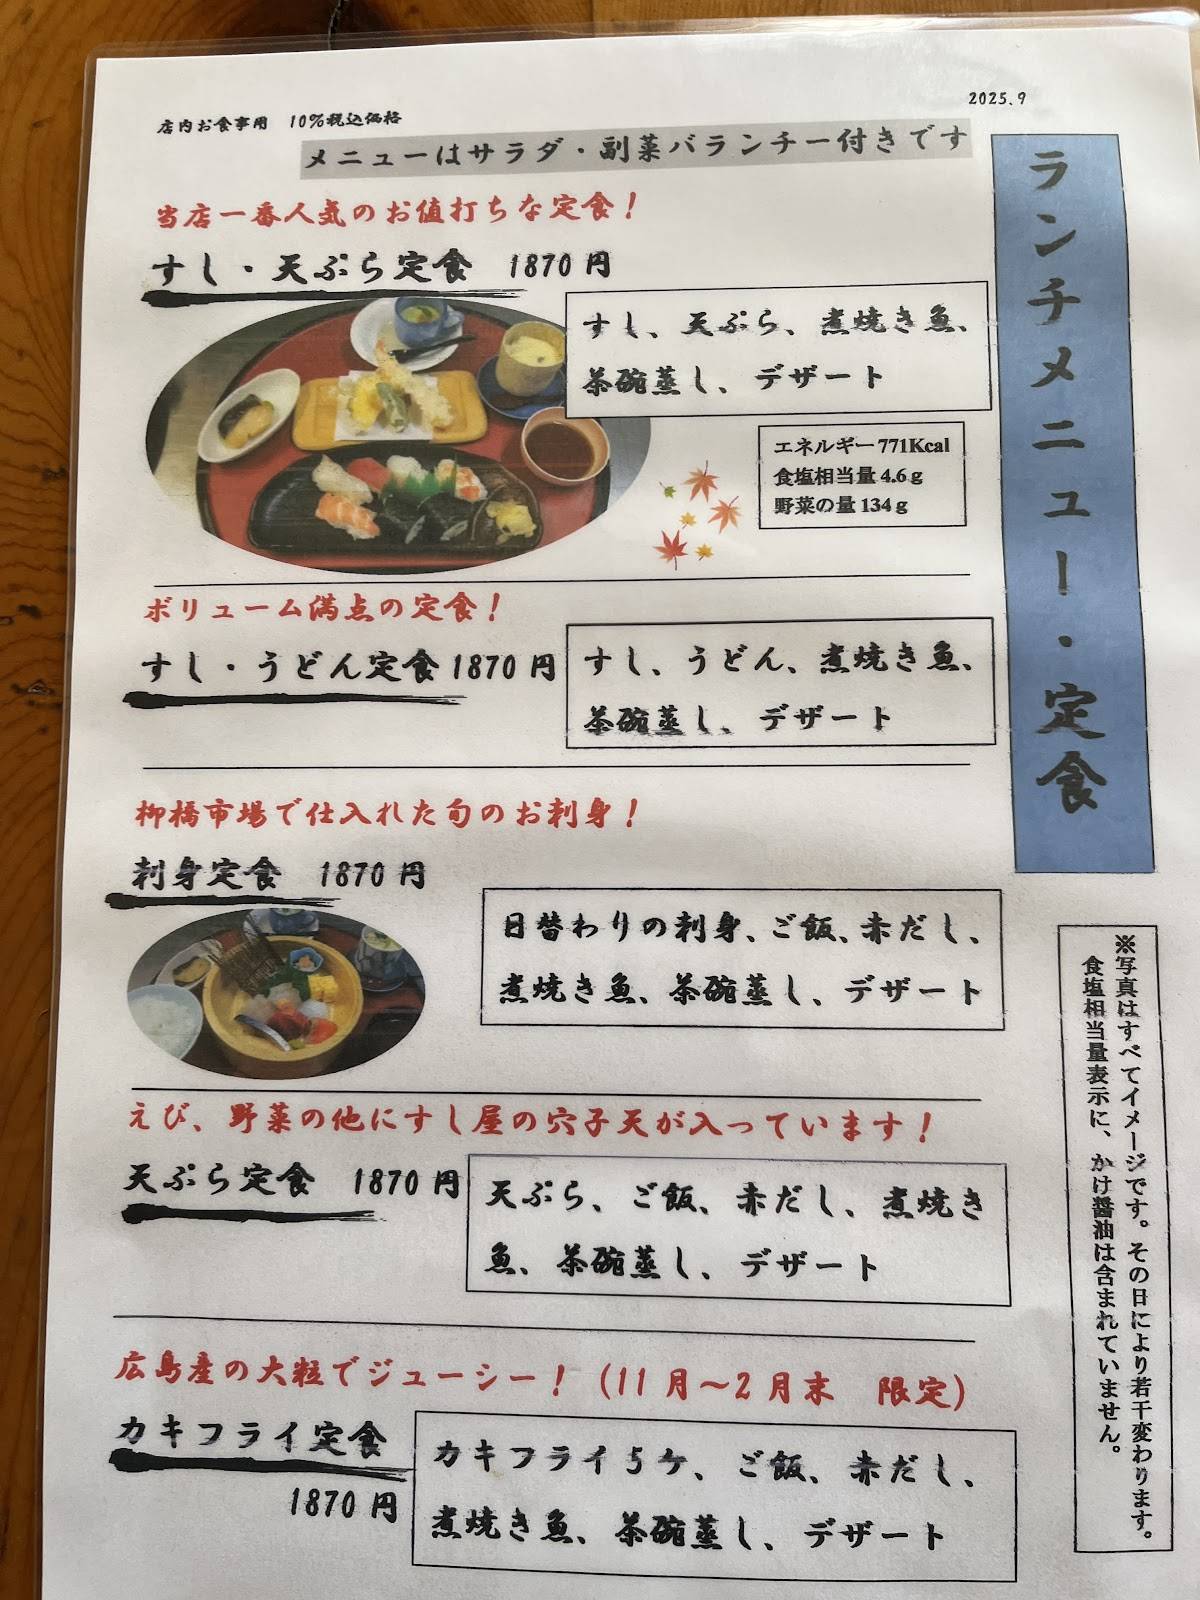 2025.9
店内お食事用　10%税込価格
メニューはサラダ・副菜バランチー付きです
ランチメニュー・定食
当店一番人気のお値打ちな定食！
すし・天ぷら定食　1870円
すし、天ぷら、煮焼き魚、
茶碗蒸し、デザート
エネルギー771Kcal
食塩相当量4.6g
野菜の量134g
ボリューム満点の定食！
すし・うどん定食1870円
すし、うどん、煮焼き魚、
茶碗蒸し、デザート
柳橋市場で仕入れた旬のお刺身！
刺身定食　1870円
日替わりの刺身、ご飯、赤だし、
煮焼き魚、茶碗蒸し、デザート
えび、野菜の他にすし屋の穴子天が入っています！
天ぷら定食　1870円
天ぷら、ご飯、赤だし、煮焼き
魚、茶碗蒸し、デザート
広島産の大粒でジューシー！（11月～2月末　限定）
カキフライ定食
1870円
カキフライ5ケ、ご飯、赤だし、
煮焼き魚、茶碗蒸し、デザート
※写真はすべてイメージです。その日により若干変わります。
食塩相当量表示に、かけ醤油は含まれていません。